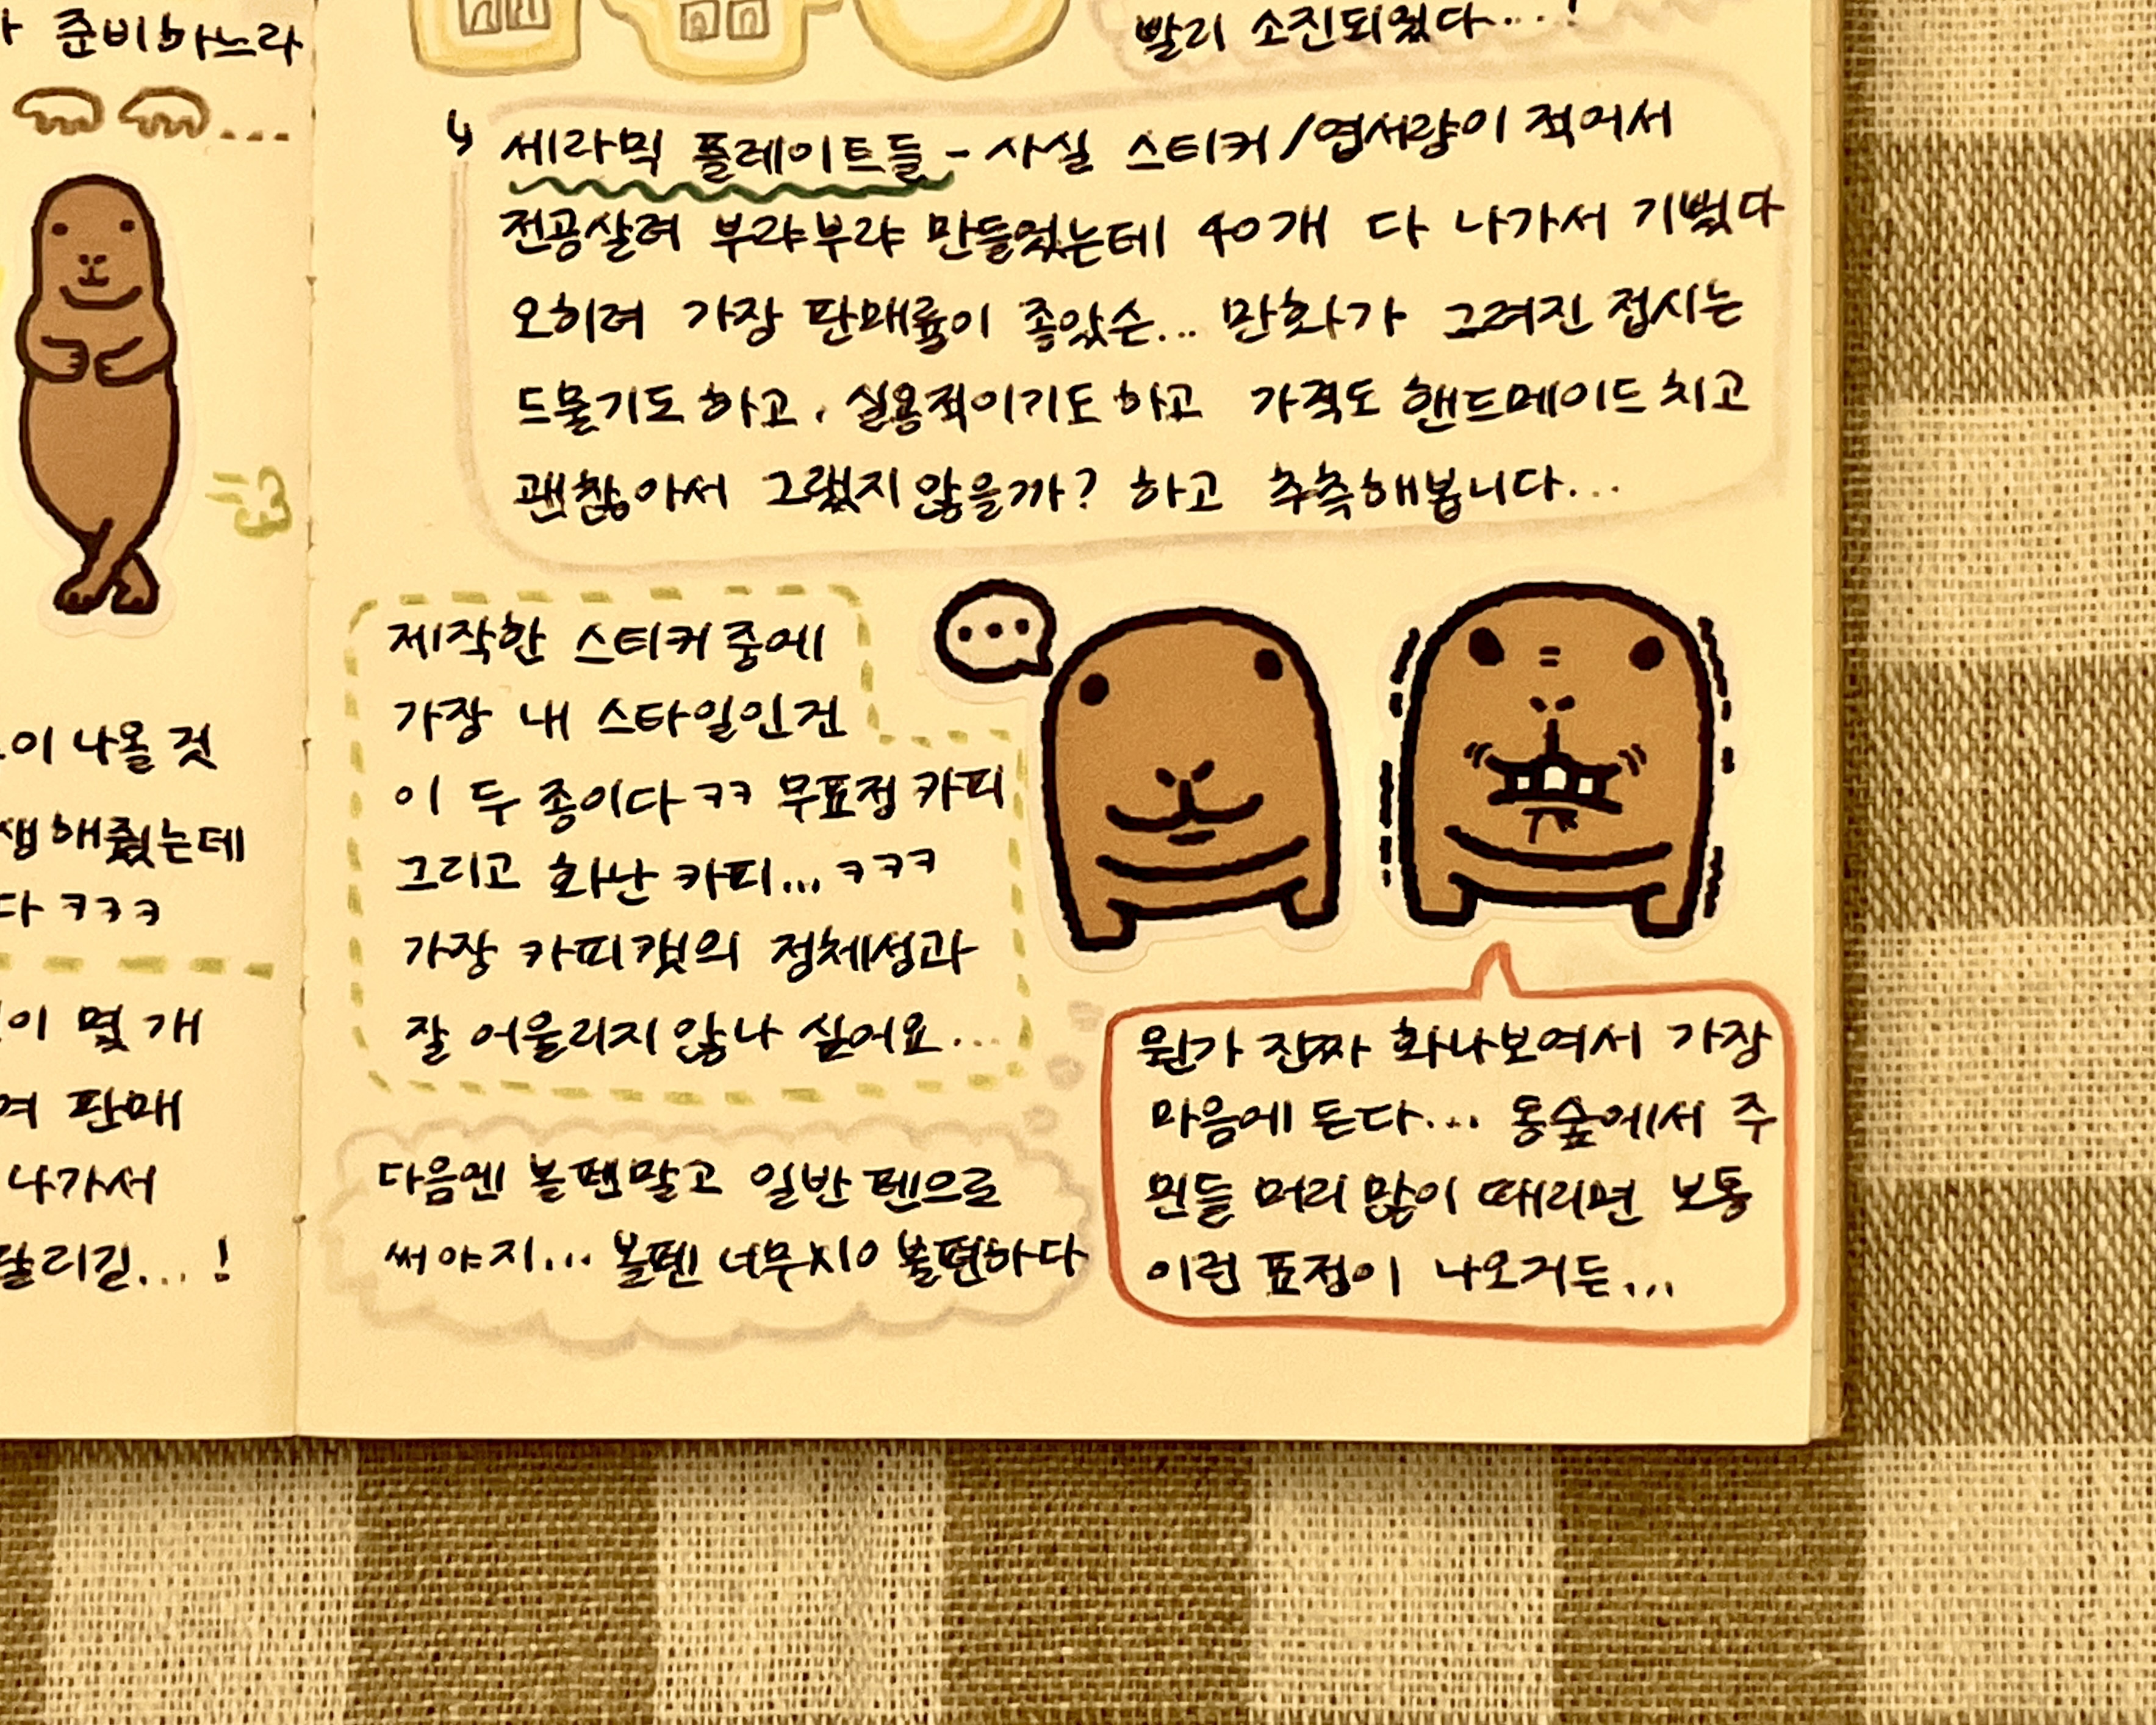 준비하느라
이 나올 것
해줬는데
ㅋㅋㅋ
이 몇 개
판매
나가서
빨리 소진되었다...!
세라믹 플레이트들 - 사실 스티커/엽서량이 적어서
전공살려 부랴부랴 만들었는데 40개 다 나가서 기뻤다
오히려 가장 판매률이 좋았슨... 만화가 그려진 접시는
드물기도 하고, 실용적이기도 하고 가격도 핸드메이드 치고
괜찮아서 그랬지 않을까? 하고 추측해봅니다...
제작한 스티커 중에
가장 내 스타일인건
이 두 종이다 ㅋㅋ 무표정 카피
그리고 화난 카피... ㅋㅋㅋ
가장 카피캤의 정체성과
잘 어울리지 않나 싶어요...
...
뭔가 진짜 화나보여서 가장
마음에 든다... 동숲에서 주
민들 머리 많이 때리면 보통
이런 표정이 나오거든...
다음엔 볼펜말고 일반 펜으로
써야지... 볼펜 너무 불편하다